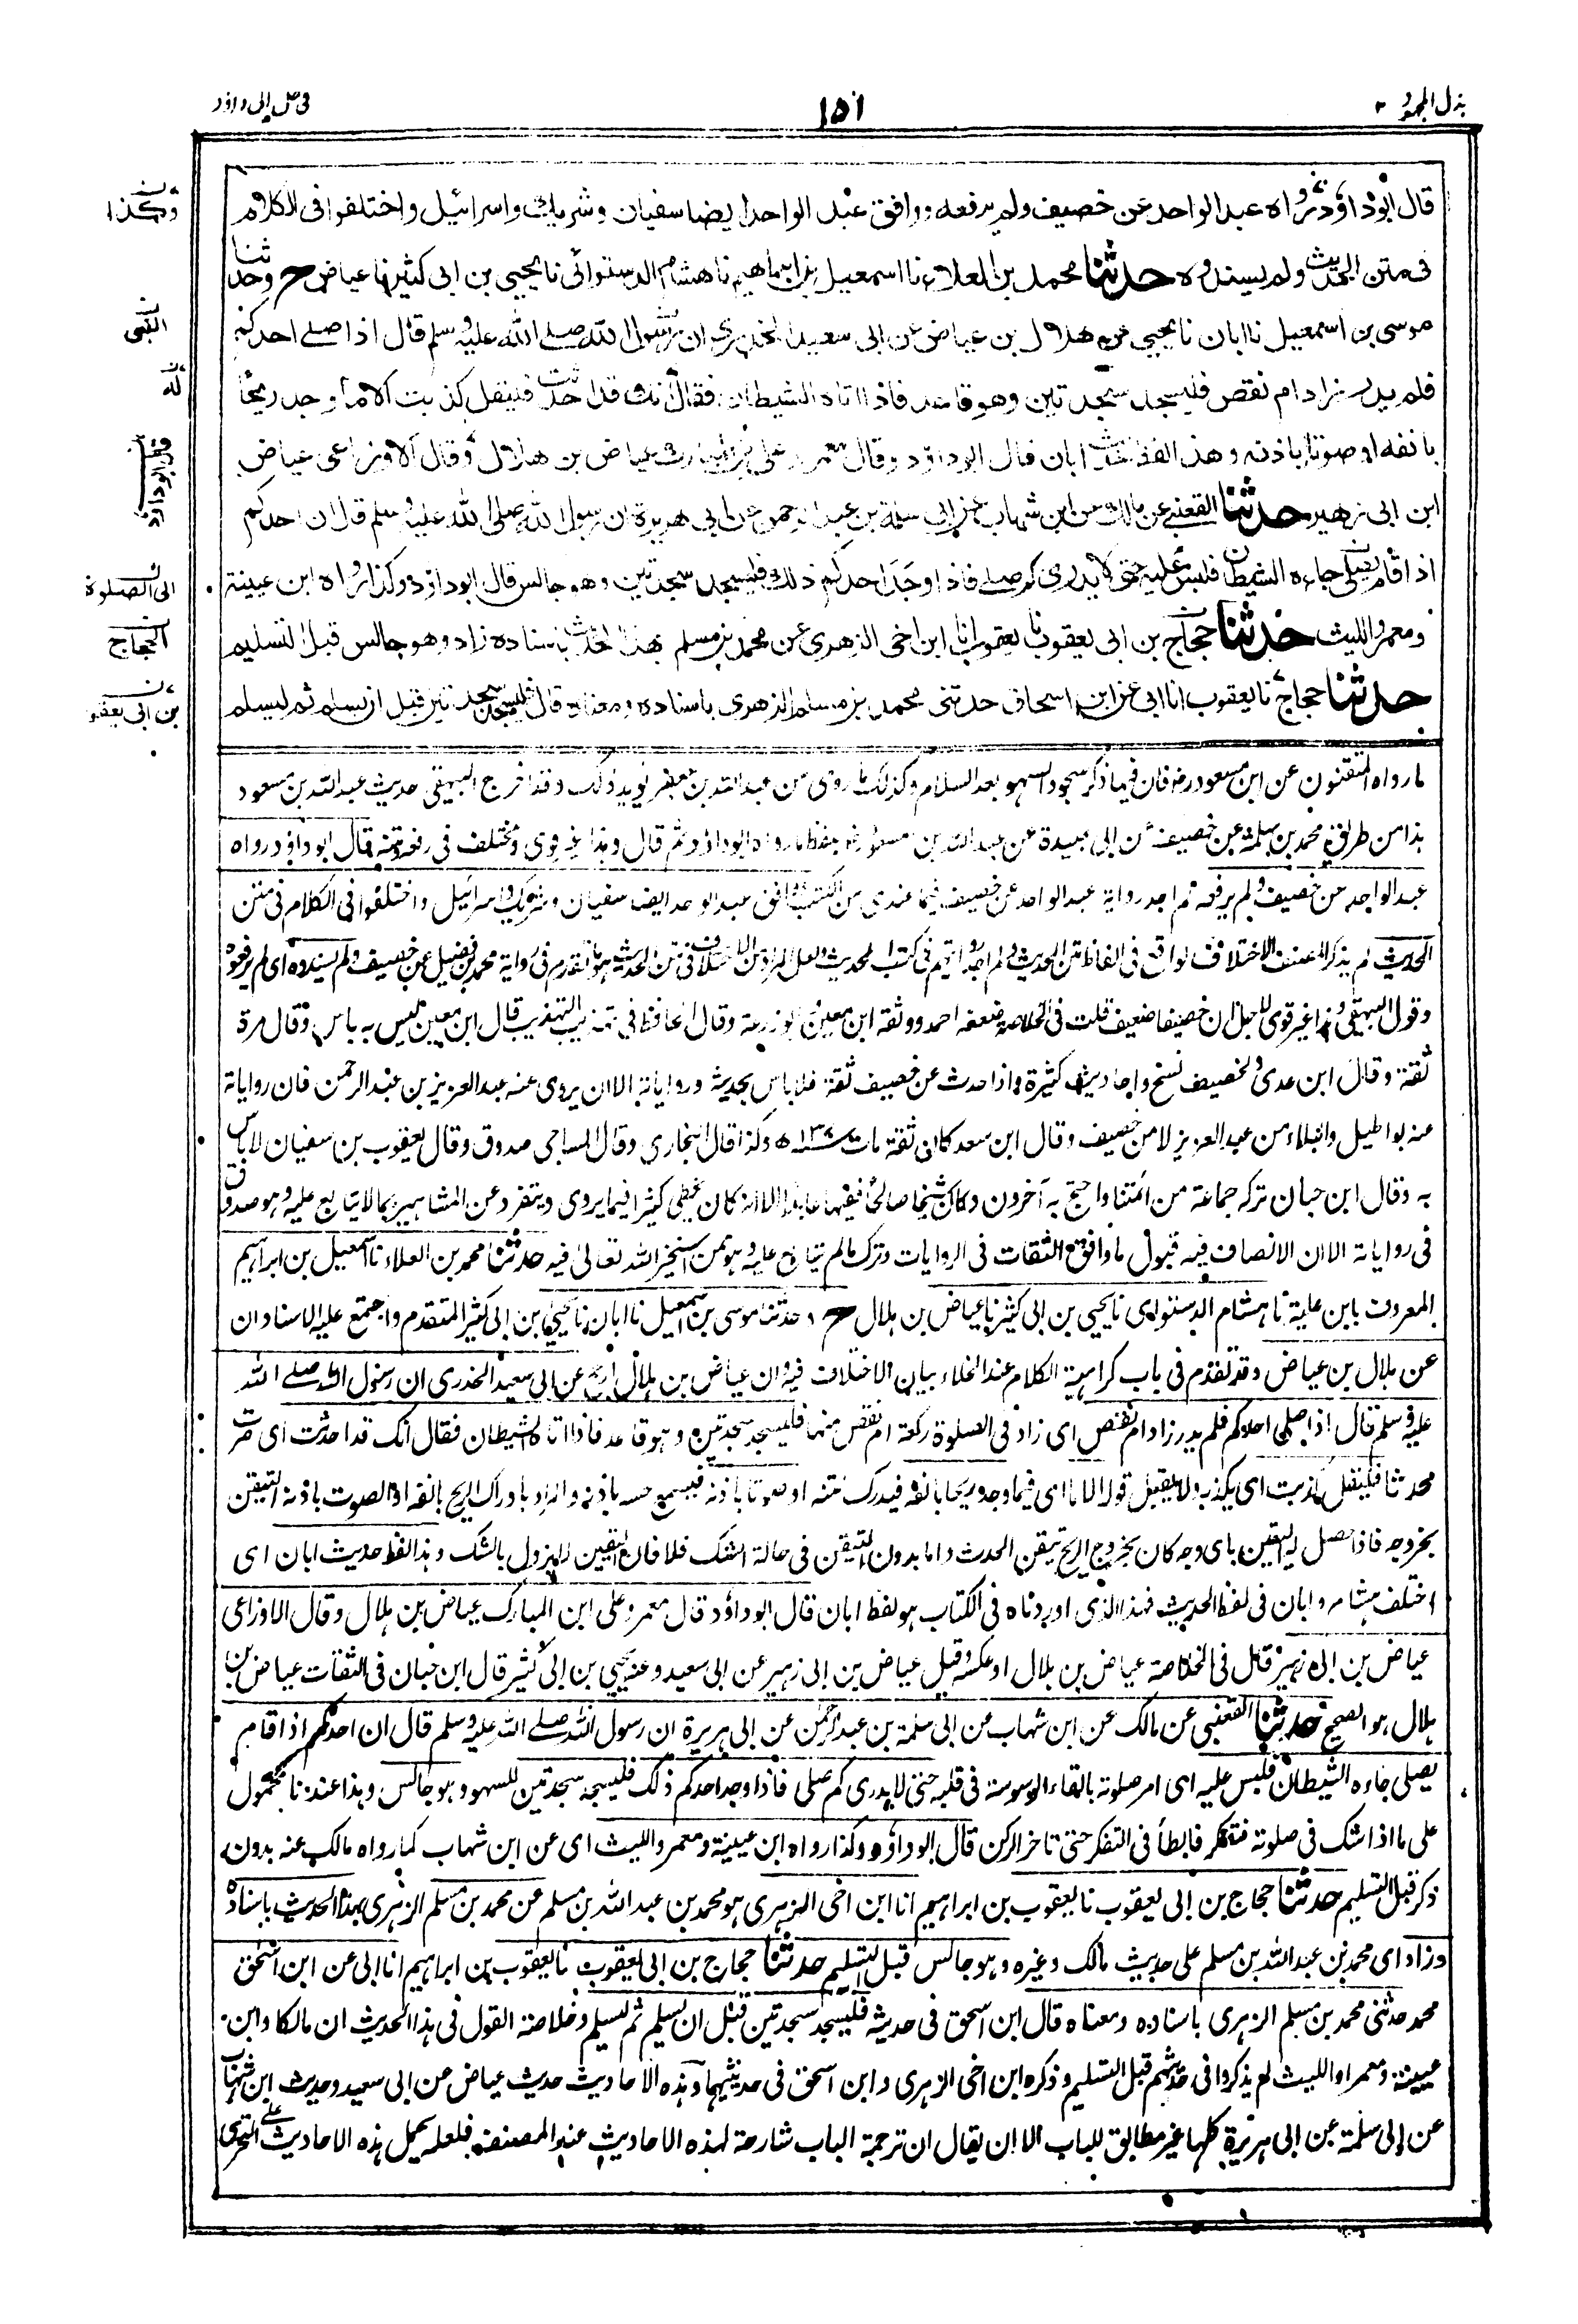 بذل المجهود ٢
١٥١
فى حل ابى داؤد
قال ابوداؤد رواه عبد الواحد عن خصيف ولم يرفعه ووافق عبد الواحد ايضا سفيان وشريك واسرائيل واختلفوا فى الكلام
فى متن الحديث ولم يسندوه حدثنا محمد بن العلاء نا اسمعيل بن ابراهيم نا هشام الدستوائى نا يحيى بن ابى كثير نا عياض ح وحدثنا
موسى بن اسمعيل نا ابان نا يحيى عن هلال بن عياض عن ابى سعيد الخدرى ان رسول الله صلے الله عليه وسلم قال اذا صلے احدكم
فلم يدر زاد ام نقص فليسجد سجدتين وهو قاعد فاذا اتاه الشيطان فقال انك قد احدثت فليقل كذبت الا ما وجد ريحا
بانفه او صوتا باذنه وهذا لفظ حديث ابان قال ابوداؤد وقال معمر وعلى بن المبارك عياض بن هلال وقال الاوزاعى عياض
ابن ابى زهير حدثنا القعنبى عن مالك عن ابن شهاب عن ابى سلمة بن عبد الرحمن عن ابى هريرة ان رسول الله صلى الله عليه وسلم قال ان احدكم
اذا قام يصلى جاءه الشيطان فلبس عليه حتى لا يدرى كم صلے فاذا وجد احدكم ذلك فليسجد سجدتين وهو جالس قال ابوداؤد وكذا رواه ابن عيينة
ومعمر والليث حدثنا حجاج بن ابى يعقوب نا يعقوب انا ابن اخى الزهرى عن محمد بن مسلم بهذا الحديث باسناده زاد وهو جالس قبل التسليم
حدثنا حجاج نا يعقوب انا ابى عن ابن اسحاق حدثنى محمد بن مسلم الزهرى باسناده ومعناه قال فليسجد سجدتين قبل ان يسلم ثم ليسلم
وهكذا
النبى
له
قال ابوداؤد
الى الصلوة
الحجاج
بن ابى يعقوب
ما رواه المتقنون عن ابن مسعود رضـ فان فيها ذكر سجود السهو بعد السلام وكذلك ما روى من عبد الله بن جعفر يؤيد ذلك وقد اخرج البيهقى حديث عبد الله بن مسعود
هذا من طريق محمد بن سلمة عن خصيف عن ابى عبيدة عن عبد الله بن مسعود رضـ بلفظ ما رواه ابوداؤد ثم قال وهذا غير قوى ومختلف فى رفعه ومتنه قال ابوداؤد رواه
عبد الواحد عن خصيف ولم يرفعه لم اجد رواية عبد الواحد عن خصيف فيما عندى من الكتب ووافق عبد الواحد ايضا سفيان وشريك واسرائيل واختلفوا فى الكلام فى متن
الحديث لم يذكر المصنف الاختلاف الواقع فى الفاظ متن الحديث ولم اجد رواياتهم فى كتب الحديث ولعل المراد من الاختلاف فى متن الحديث هو ما تقدم فى رواية محمد بن فضيل عن خصيف ولم يسندوه اى لم يرفعوه
وقول البيهقى وهذا غير قوى لاجل ان خصيفا ضعيف قلت فى الخلاصة ضعفه احمد ووثقه ابن معين وابو زرعة وقال الحافظ فى تهذيب التهذيب قال ابن معين ليس به باس وقال مرة
ثقة وقال ابن عدى ولخصيف نسخ واحاديث كثيرة واذا حدث عن خصيف ثقة فلا باس بحديثه ورواياته الا ان يروى عنه عبد العزيز بن عبد الرحمن فان رواياته
عنه بواطيل والبلاء من عبد العزيز لا من خصيف وقال ابن سعد كان ثقة مات سنة ١٣٧ ه وكذا قال البخارى وقال الساجى صدوق وقال يعقوب بن سفيان لا باس
به وقال ابن حبان تركه جماعة من ائمتنا واحتج به آخرون وكان شيخا صالحا فقيها عابدا الا انه كان يخطى كثيرا فيما يروى ويتفرد عن المشاهير بما لا يتابع عليه وهو صدوق
فى رواياته الا ان الانصاف فيه قبول ما وافق الثقات فى الروايات وترك ما لم يتابع عليه وهو ممن استخير الله تعالى فيه حدثنا محمد بن العلاء نا اسمعيل بن ابراهيم
المعروف بابن علية نا هشام الدستوائى نا يحيى بن ابى كثير نا عياض بن هلال ح وحدثنا موسى بن اسمعيل نا ابان نا يحيى بن ابى كثير المتقدم واجتمع عليه الاسنادان
عن هلال بن عياض وقد تقدم فى باب كراهية الكلام عند الخلاء بيان الاختلاف فيه وان عياض بن هلال ارجح عن ابى سعيد الخدرى ان رسول الله صلے الله
عليه وسلم قال اذا صلى احدكم فلم يدر زاد ام نقص اى زاد فى الصلوة ركعة ام نقص منها فليسجد سجدتين وهو قاعد فاذا اتاه الشيطان فقال انك قد احدثت اى صرت
محدثا فليقل كذبت اى يكذبه ولا يقبل قوله الا ما اى فيما وجد ريحا بانفه فيدرك نتنه او صوتا باذنه فيسمع حسه باذنه والمراد بادراك الريح بانفه او الصوت باذنه التيقن
بخروجه فاذا حصل له اليقين باى وجه كان بخروج الريح تيقن الحدث واما بدون التيقن فى حالة الشك فلا فان اليقين لا يزول بالشك وهذا لفظ حديث ابان اى
اختلف هشام وابان فى لفظ الحديث فهذا الذى اوردناه فى الكتاب هو لفظ ابان قال ابوداؤد قال معمر وعلى ابن المبارك عياض بن هلال وقال الاوزاعى
عياض بن ابى زهير قال فى الخلاصة عياض بن هلال او عكسه وقيل عياض بن ابى زهير عن ابى سعيد وعنه يحيى بن ابى كثير قال ابن حبان فى الثقات عياض بن
هلال هو الصحيح حدثنا القعنبى عن مالك عن ابن شهاب عن ابى سلمة بن عبد الرحمن عن ابى هريرة ان رسول الله صلے الله عليه وسلم قال ان احدكم اذا قام
يصلى جاءه الشيطان فلبس عليه اى امر صلوته بالقاء الوسوسة فى قلبه حتى لا يدرى كم صلى فاذا وجد احدكم ذلك فليسجد سجدتين للسهو وهو جالس وهذا عندنا محمول
على ما اذا شك فى صلوته فتفكر فابطأ فى التفكر حتى تاخر الركن قال ابوداؤد وكذا رواه ابن عيينة ومعمر والليث اى عن ابن شهاب كما رواه مالك عنه بدون
ذكر قبل التسليم حدثنا حجاج بن ابى يعقوب نا يعقوب بن ابراهيم انا ابن اخى الزهرى هو محمد بن عبد الله بن مسلم عن محمد بن مسلم الزهرى بهذا الحديث باسناده
وزاد اى محمد بن عبد الله بن مسلم على حديث مالك وغيره وهو جالس قبل التسليم حدثنا حجاج بن ابى يعقوب نا يعقوب بن ابراهيم انا ابى عن ابن اسحق
محمد حدثنى محمد بن مسلم الزهرى باسناده ومعناه قال ابن اسحق فى حديثه فليسجد سجدتين قبل ان يسلم ثم ليسلم وخلاصة القول فى هذا الحديث ان مالكا وابن
عيينة ومعمرا والليث لم يذكروا فى حديثهم قبل التسليم وذكره ابن اخى الزهرى وابن اسحق فى حديثيهما وهذه الاحاديث حديث عياض عن ابى سعيد وحديث ابن شهاب
عن ابى سلمة عن ابى هريرة كلها غير مطابق للباب الا ان يقال ان ترجمة الباب شارحة لهذه الاحاديث عند المصنف فلعله يحمل هذه الاحاديث على التحرى